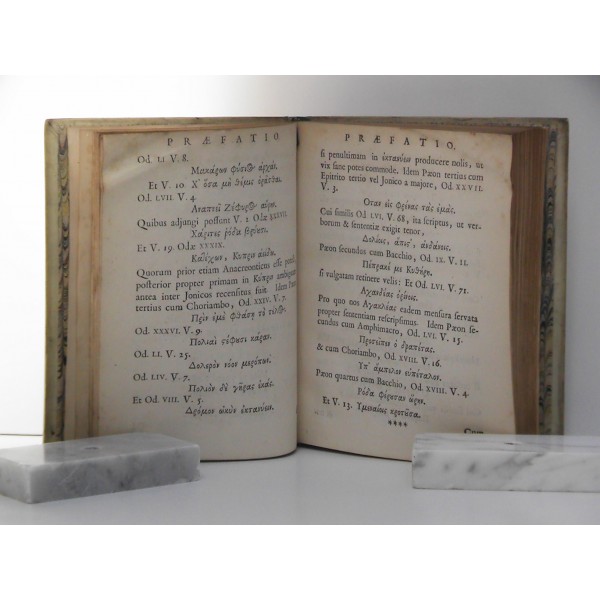 PRÆFATIO.
Od. LI V. 8.
Μακάρων φύτων ἀρχαί.
Et V. 10 Χ' ὅσα μὴ θέμις ὁρᾶσθαι.
Od. LVII. V. 4.
Ζεφύρων
Quibus adjungi possent V. 1 Odæ
Χάριτες ῥόδα βρύουσι.
Et V. 19. Odæ XXXIX.
Κατέχων, Κυπριν αυδω.
Quorum prior etiam Anacreonticus esse potest,
posterior propter primam in Κυπριν ambiguam
antea inter Jonicos recensitus fuit. Idem Pæon
tertius cum Choriambo, Od. XXIV. V. 7.
Πρὶν ἐμὲ φθάσῃ τὸ τέλος.
Od. XXXVI. V. 9.
Πολιαὶ στέφουσι κάραν.
Od. LI. V. 25.
Δολερὸν νόον μερόπων.
Od. LIV. V. 7.
Πολιὸν δὲ γῆρας ἑκάς.
Et Od. VIII. V. 5.
Δρόμον ὠκὺν ἐκτανύειν.
PRÆFATIO.
si penultimam in ἐκτανύειν producere nolis, ut
vix sane potes commode. Idem Pæon tertius cum
Epitrito tertio vel Jonico a majore, Od. XXVII.
V. 3.
Ὅταν εἰς φρένας τὰς ἐμάς.
Cui similis Od LVI. V. 68, ita scriptus, ut ver-
borum & sententiæ exigit tenor,
Δολίοις, ἀπιστ', ἀνδάνεις.
Pæon secundus cum Bacchio, Od. IX. V. 11
Πέπρακέ με Κυθήρη.
si vulgatam retinere velis: Et Od. LVI. V. 71.
Pro quo nos Αγακλέας eadem mensura servata
propter sententiam rescripsimus. Idem Pæon se-
cundus cum Amphimacro, Od. LVI. V. 15.
ὁ δραπέτας.
& cum Choriambo, Od. XVIII. V. 16.
Ὑπ' ἄμπελον εὐπέταλον.
Pæon quartus cum Bacchio, Od. XVIII. V. 4.
Ῥόδα φέρουσαν ὥρην.
Et V. 13. Ὑμεναίοις κροτοῦσα.
****
Cum